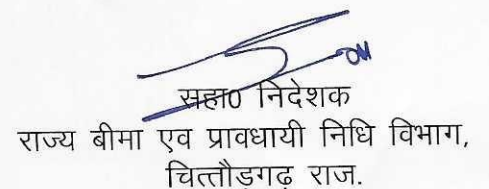 सहा0 निदेशक
राज्य बीमा एव प्रावधायी निधि विभाग,
चित्तौड़गढ़ राज.